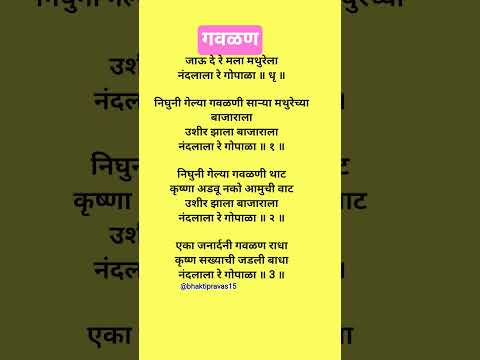 गवळण
जाऊ दे रे मला मथुरेला
नंदलाला रे गोपाळा ॥ धृ ॥
निघुनी गेल्या गवळणी साऱ्या मथुरेच्या
बाजाराला
उशीर झाला बाजाराला
नंदलाला रे गोपाळा ॥ १ ॥
निघुनी गेल्या गवळणी थाट
कृष्णा अडवू नको आमुची वाट
उशीर झाला बाजाराला
नंदलाला रे गोपाळा ॥ २ ॥
एका जनार्दनी गवळण राधा
कृष्ण सख्याची जडली बाधा
नंदलाला रे गोपाळा ॥ 3 ॥
@bhaktipravas15